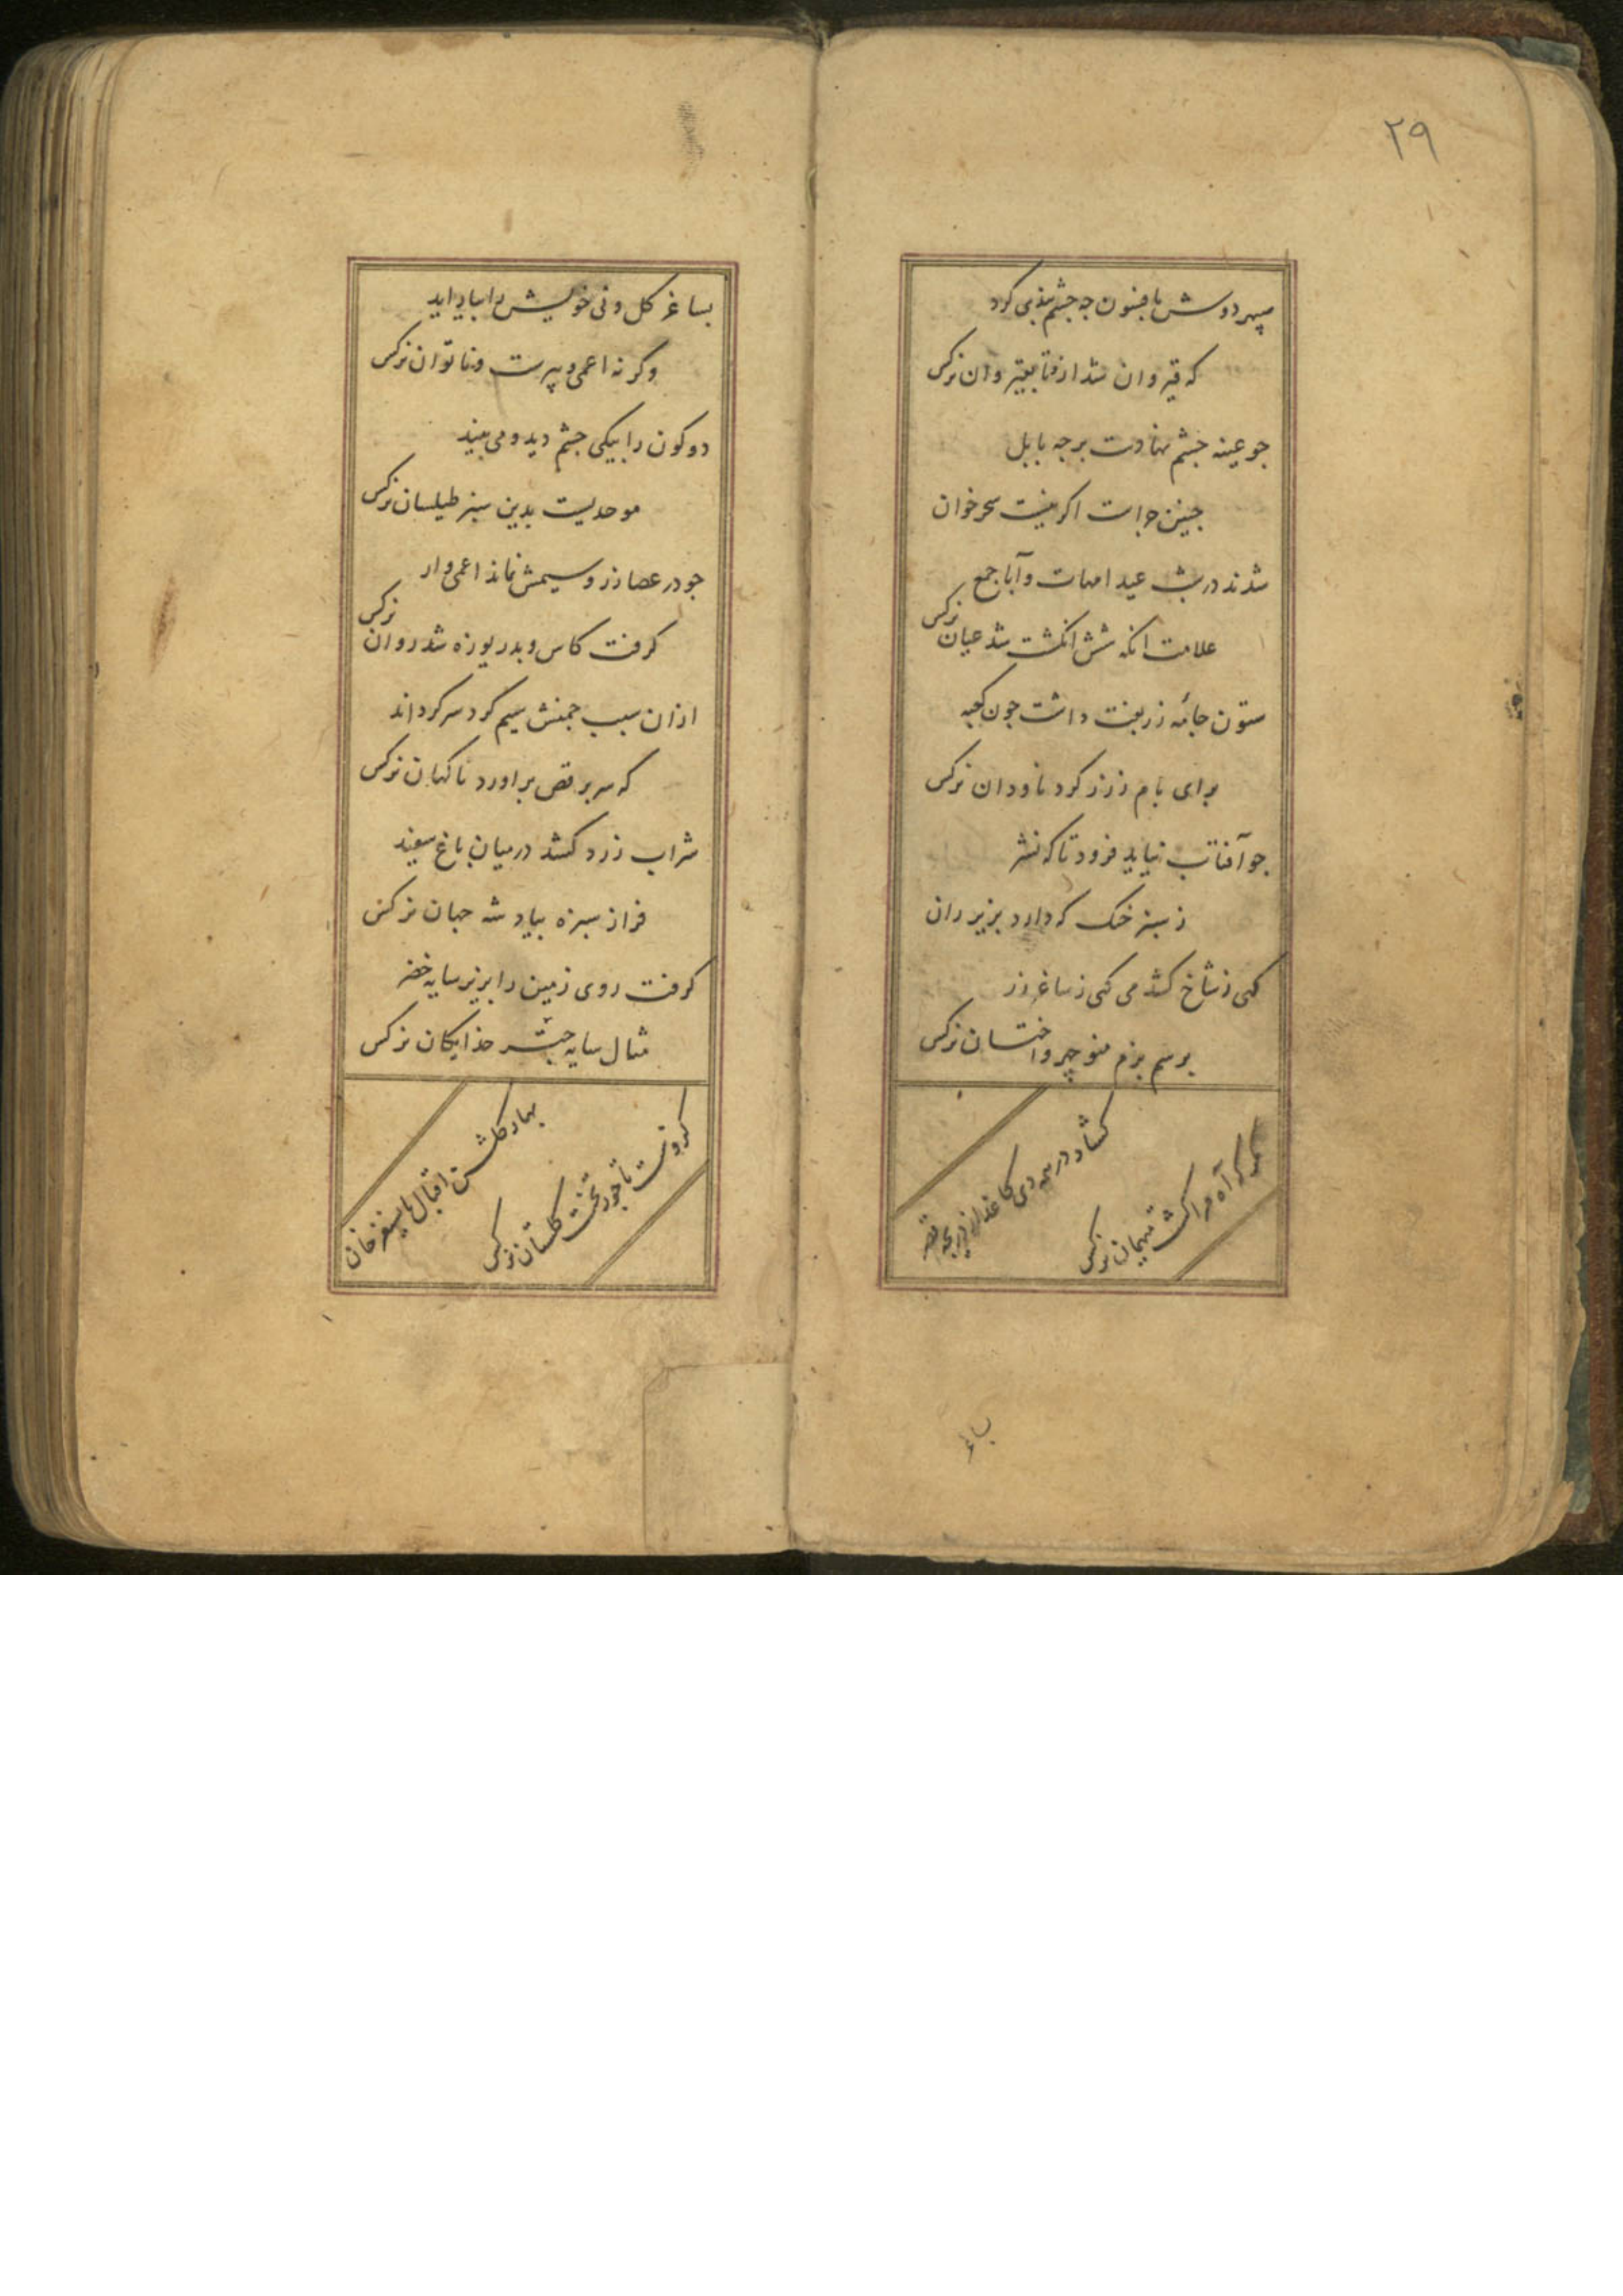 ۲۹
سپهر دوش بافسون چه چشم بندی کرد
که قیروان شد از قتا بقیروان نرکس
جو عینه جشم نهادست بر چه بابل
جنین جراست اکر نیست سحرخوان
نرکس
شدند در شب عید امهات و آبا جمع
علامت انکه شش انکشت شد عیان
ستون جامه زربفت داشت جون کعبه
برای بام ز زر کرد ناودان نرکس
جو آفتاب نیاید فرود تا که نشر
ز سبز خنک که دارد بزیر ران
کهی ز شاخ کشد می کهی ز ساغر زر
برسم بزم منوچهر و اخستان نرکس
کشاد در مه دی کاغذین دریچه قصر
که آه مرا کشت نرکس
باغ
بساغر کل و نی خویش را بیاراید
وکرنه اعمی و پیرست و ناتوان نرکس
دو کون را بیکی جشم دید و می بیند
موحدیست بدین سبز طیلسان نرکس
جو در عصا زر و سیمش نماند اعمی وار
نرکس
کرفت کاس و بدریوزه شد روان
ازان سبب جمنش سیم کرد سر کرداند
که سر برقص براورد ناکهان نرکس
شراب زرد کشد در میان باغ سفید
فراز سبزه بیاد شه جهان نرکس
کرفت روی زمین را بزیر سایه خضر
مثال سایه جتر خدایکان نرکس
بهار کلشن اقبال بایسنغر خان
کزوست تاجور تخت کلستان نرکس